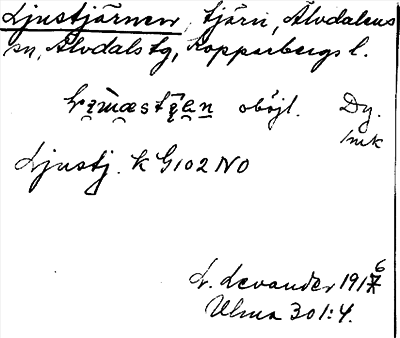 Ljustjärnen, tjärn, Älvdalens
sn, Älvdals tg, Kopparbergs l.
oböjl. Dy.
mk
Ljustj. k G102 NO
L. Levander 1916
Ulma 301:4.